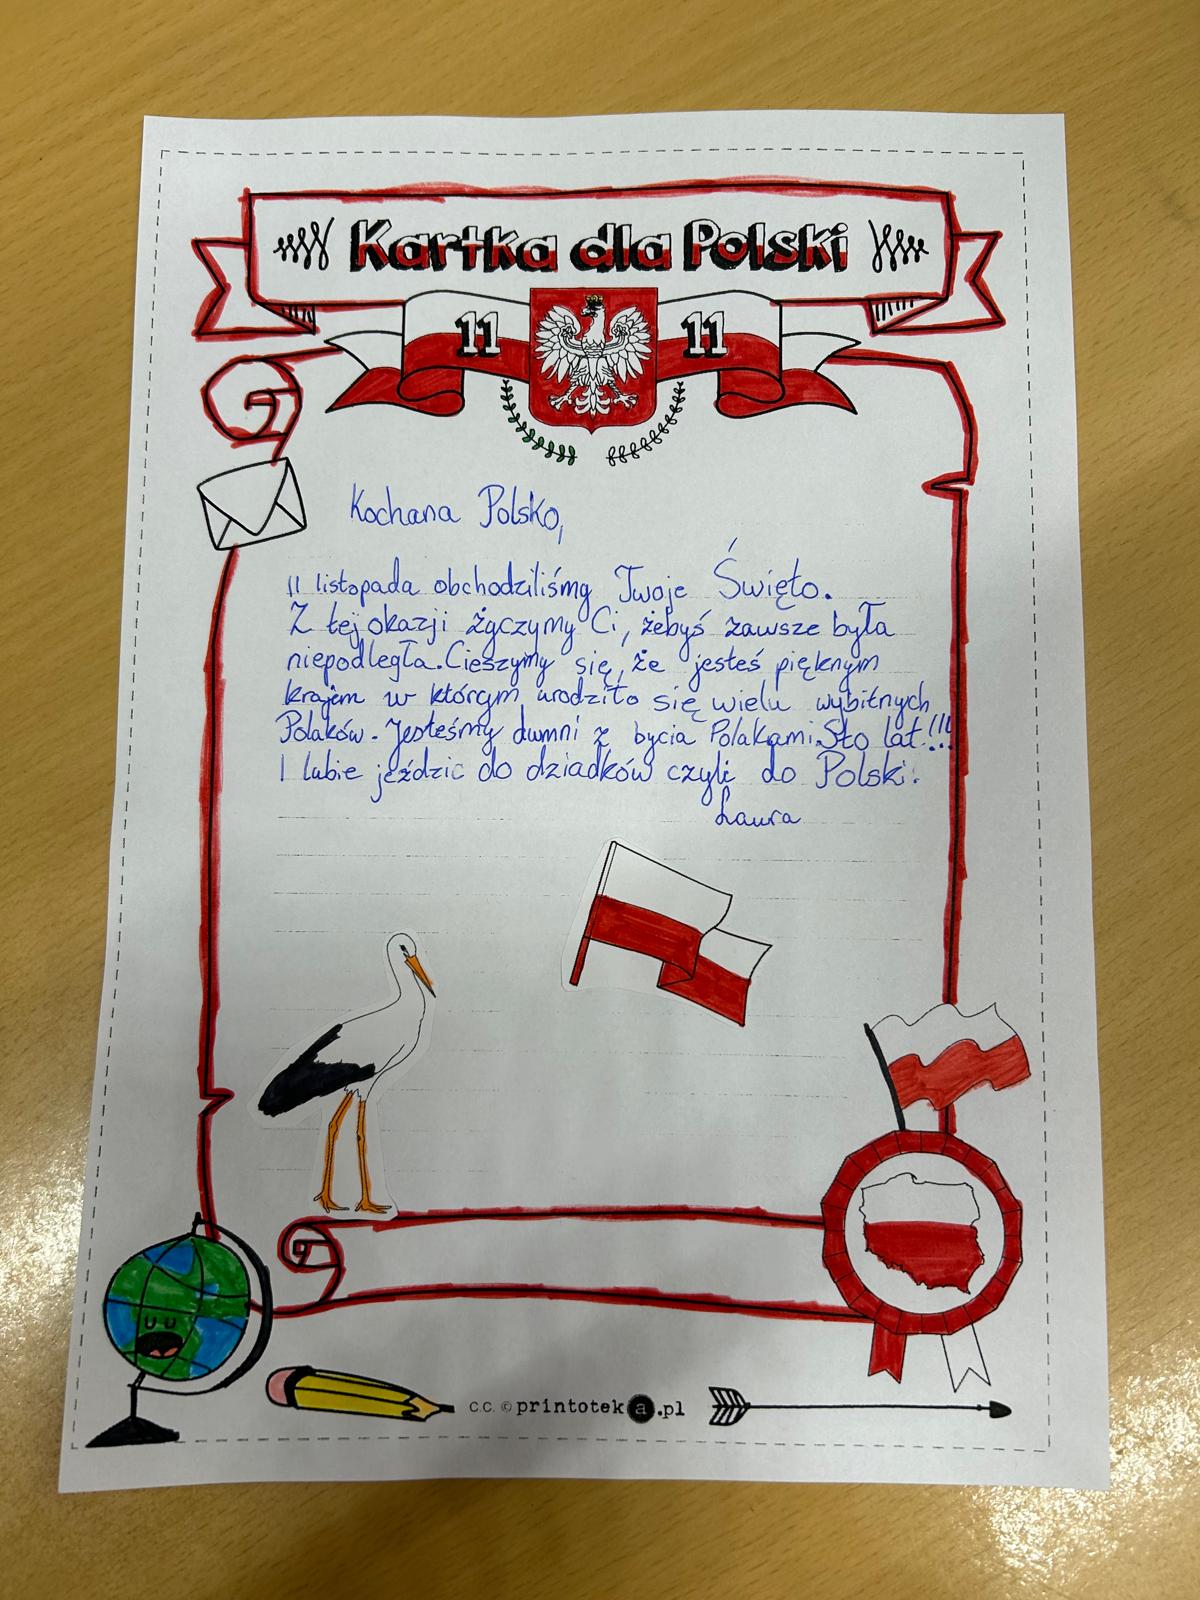 Kartka dla Polski
11 11
Kochana Polsko,
11 listopada obchodziliśmy Twoje Święto.
Z tej okazji życzymy Ci, żebyś zawsze była
niepodległa. Cieszymy się, że jesteś pięknym
krajem w którym urodziło się wielu wybitnych
Polaków. Jesteśmy dumni z bycia Polakami. Sto lat!!!
I lubie jeździc do dziadków czyli do Polski.
Laura
c.c. © printoteka.pl